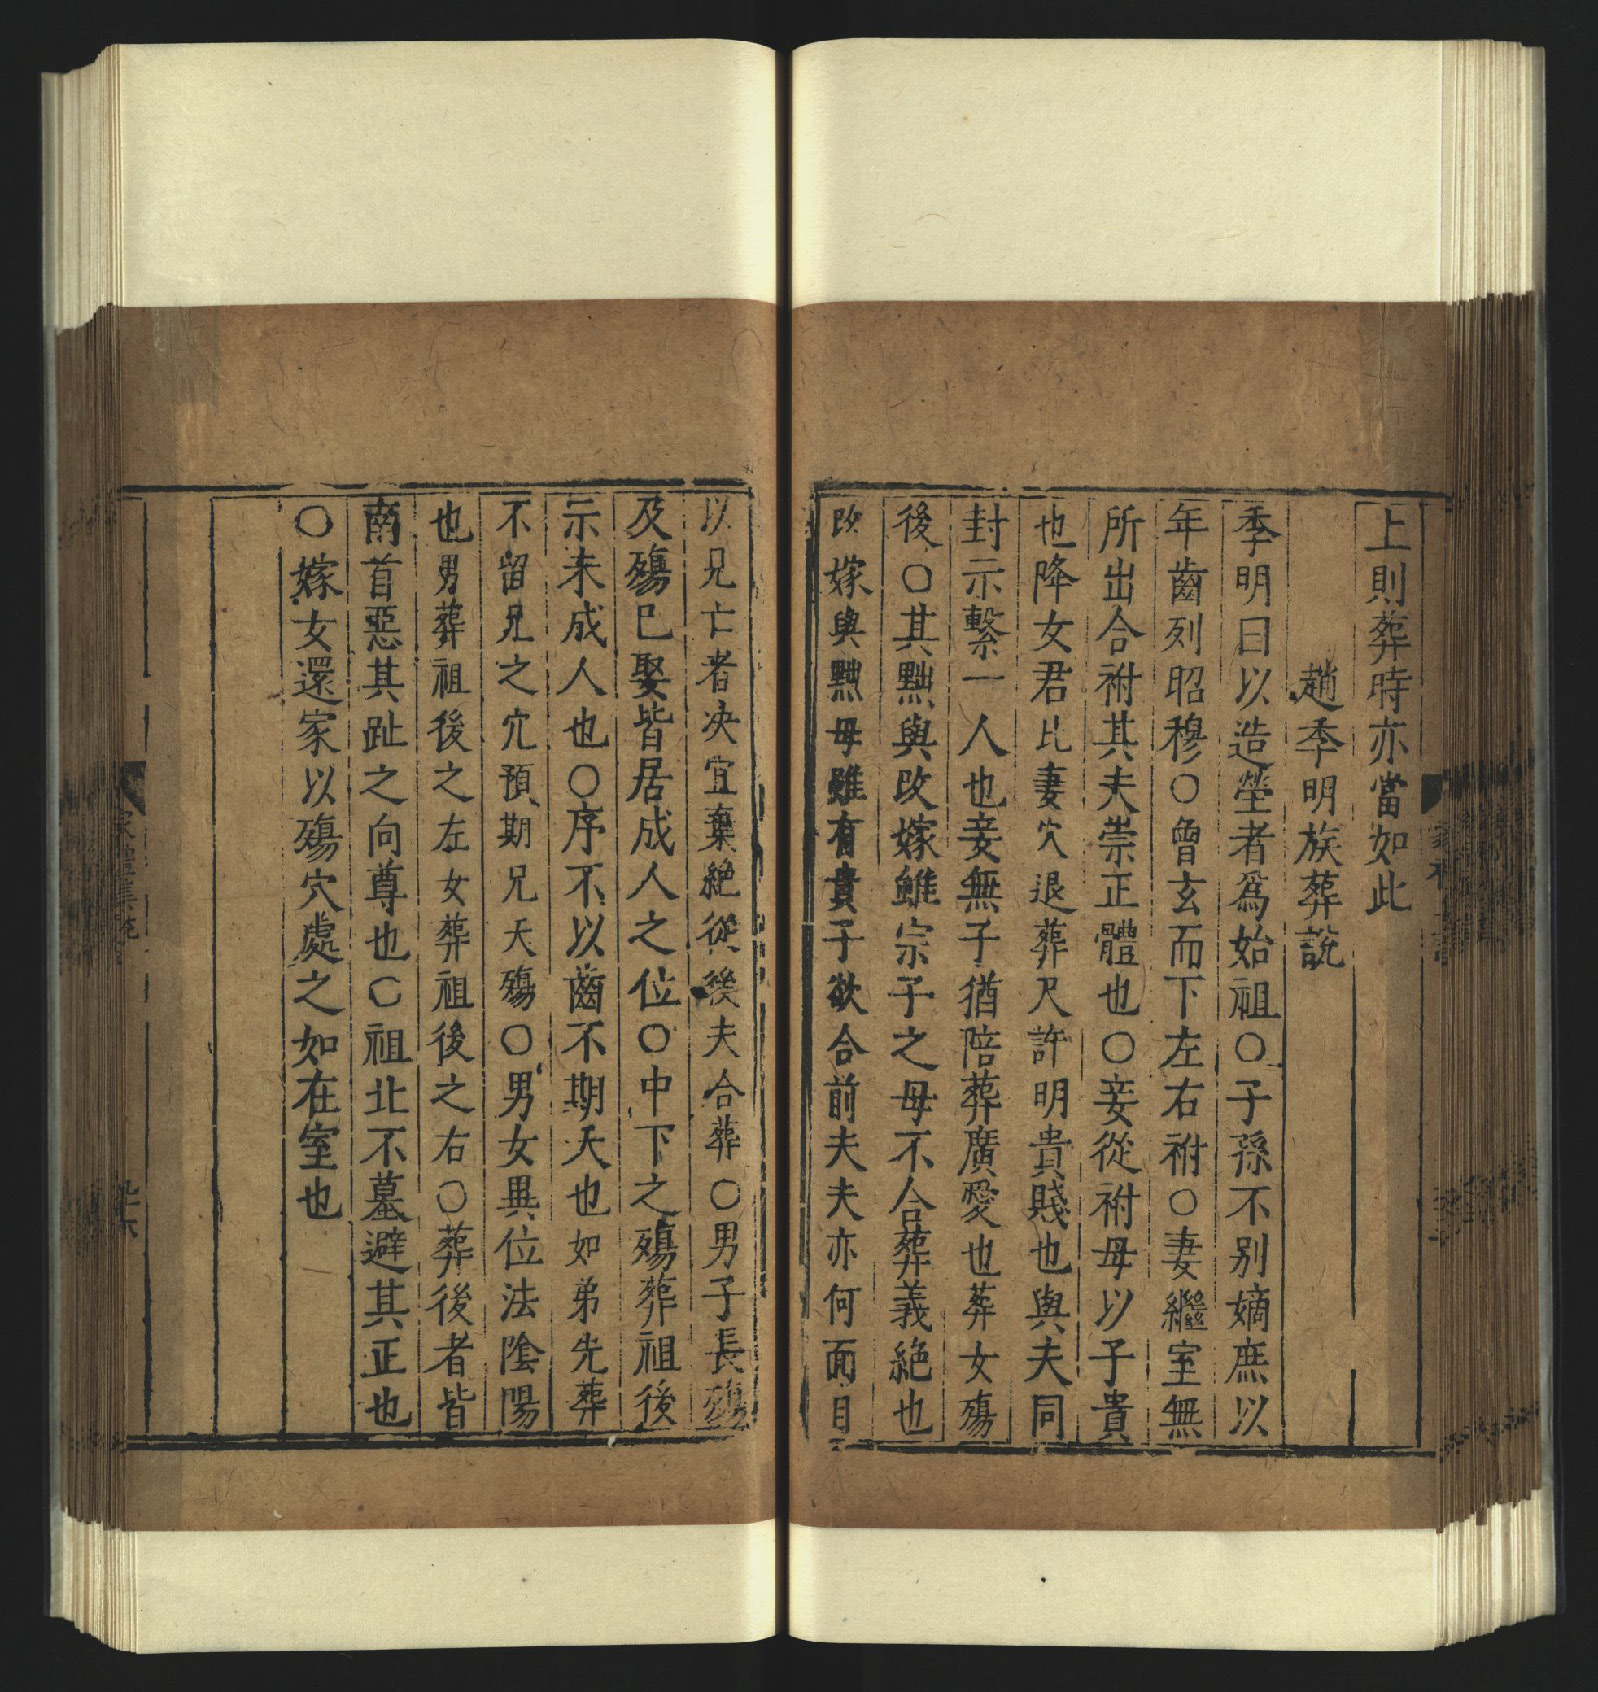 上則葬時亦當如此
趙季明族葬說
季明曰以造塋者爲始祖○子孫不别嫡庶以
年齒列昭穆○曾玄而下左右祔○妻繼室無
所出合祔其夫崇正體也○妾從祔母以子貴
也降女君比妻穴退葬尺許明貴賤也與夫同
封示繫一人也妾無子猶陪葬廣愛也葬女殤
後○其黜與改嫁雖宗子之母不合葬義絶也
改嫁與黜母雖有貴子欲合前夫夫亦何面目
以見亡者决宜棄絶從後夫合葬○男子長殤
及殤已娶皆居成人之位○中下之殤葬祖後
示未成人也○序不以齒不期夭也如弟先葬
不留兄之穴預期兄夭殤○男女異位法陰陽
也男葬祖後之左女葬祖後之右○葬後者皆
南首惡其趾之向尊也○祖北不墓避其正也
○嫁女還家以殤穴處之如在室也